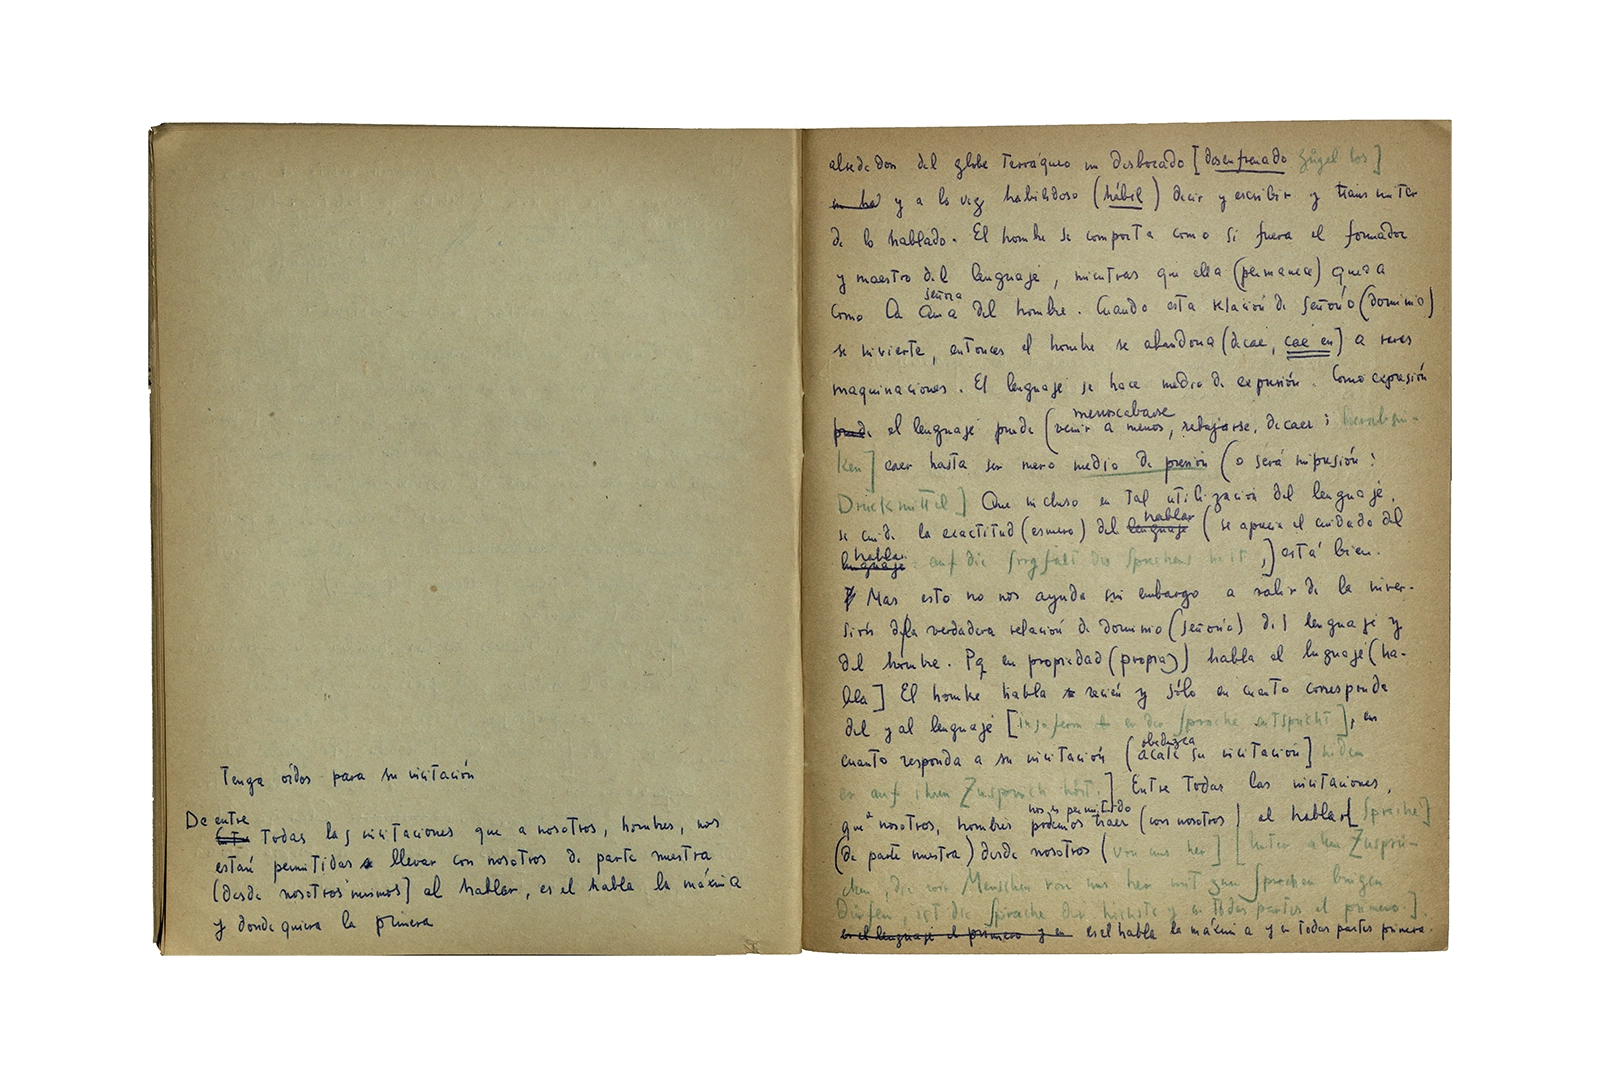 Tenga oídos para su incitación
De entre
todas las incitaciones que a nosotros, hombres, nos
están permitidas llevar con nosotros de parte nuestra
(desde nosotros mismos] al hablar, es el habla la máxima
y donde quiera la primera
alrededor del globo terráqueo un desbocado [desenfrenado zügel los]
y a la vez habilidoso (hábil) decir y escribir y transmitir
de lo hablado. El hombre se comporta como si fuera el formador
y maestro del lenguaje, mientras que ella (permanece) queda
señora
como ama del hombre. Cuando esta relación de señorío (dominio)
se invierte, entonces el hombre se abandona (decae, cae en] a
maquinaciones. El lenguaje se hace medio de expresión. Como expresión
menoscabarse
puede el lenguaje puede (venir a menos, rebajarse, decaer : herabsin-
ken] caer hasta ser mero medio de presión (o será impresión :
Druckmittel] Que incluso en tal utilización del lenguaje
hablar
se cuide la exactitud (esmero) del lenguaje (se aprecia el cuidado del
hablar
lenguaje : auf die Sorgfalt des Sprechens hält ,] está bien.
Mas esto no nos ayuda sin embargo a salir de la inver-
sión de la verdadera relación de dominio (señorío) del lenguaje y
del hombre. Pq en propiedad (propia) habla el lenguaje (ha-
bla] El hombre habla recién y sólo en cuanto corresponda
del y al lenguaje [insofern er der Sprache entspricht], en
obedezca
cuanto responda a su incitación (acate su incitación] indem
er auf ihren Zuspruch hört.] Entre todas las incitaciones,
nos es permitido
que nosotros, hombres podemos traer (con nosotros) al hablar [Sprache]
(de parte nuestra) desde nosotros (von uns her] [Unter allen Zusprü-
chen, die wir Menschen von uns her mit zum Sprechen bringen
Dürfen, ist die Sprache der höchste y en todas partes el primero.]
es el lenguaje el primero y en es el habla la máxima y en todas partes primera.